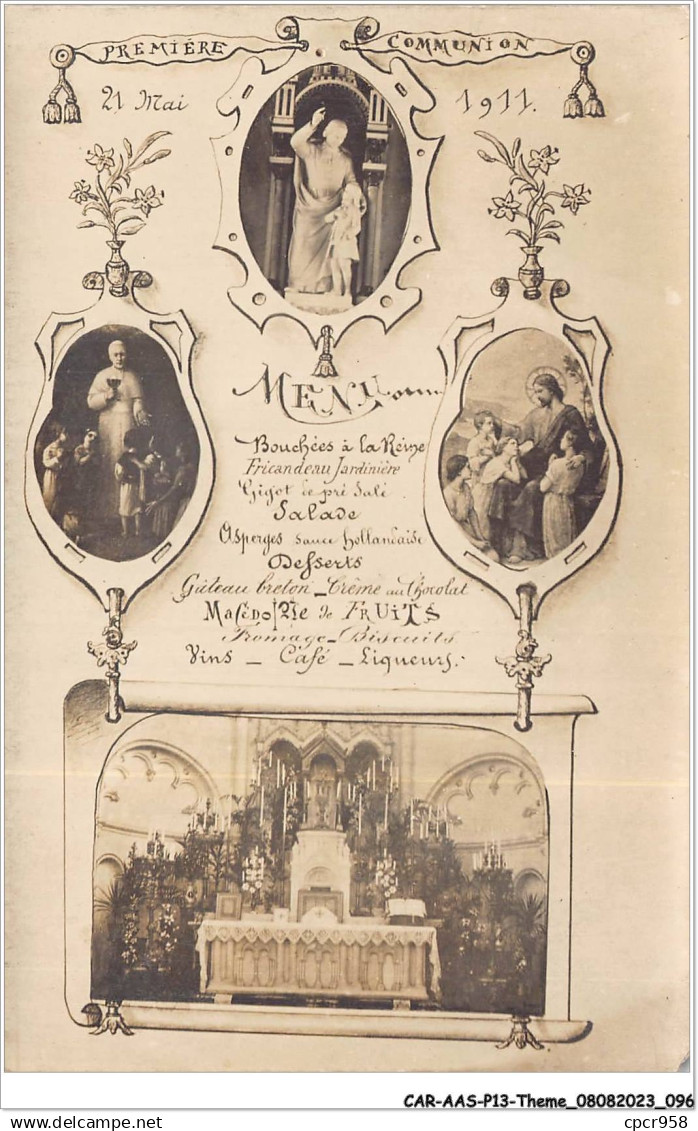 PREMIÉRE COMMUNION
21 Mai 1911.
MENU
Bouchées à la Reine
Fricandeau Jardinière
Gigot de pré Salé
Salade
Asperges sauce hollandaise
Desserts
Gâteau breton _ Crème au Chocolat
MaCÉDOINe de FRUiTS
Fromage _ Biscuits
Vins _ Café _ Liqueurs.
CAR-AAS-P13-Theme_08082023_096
cpcr958